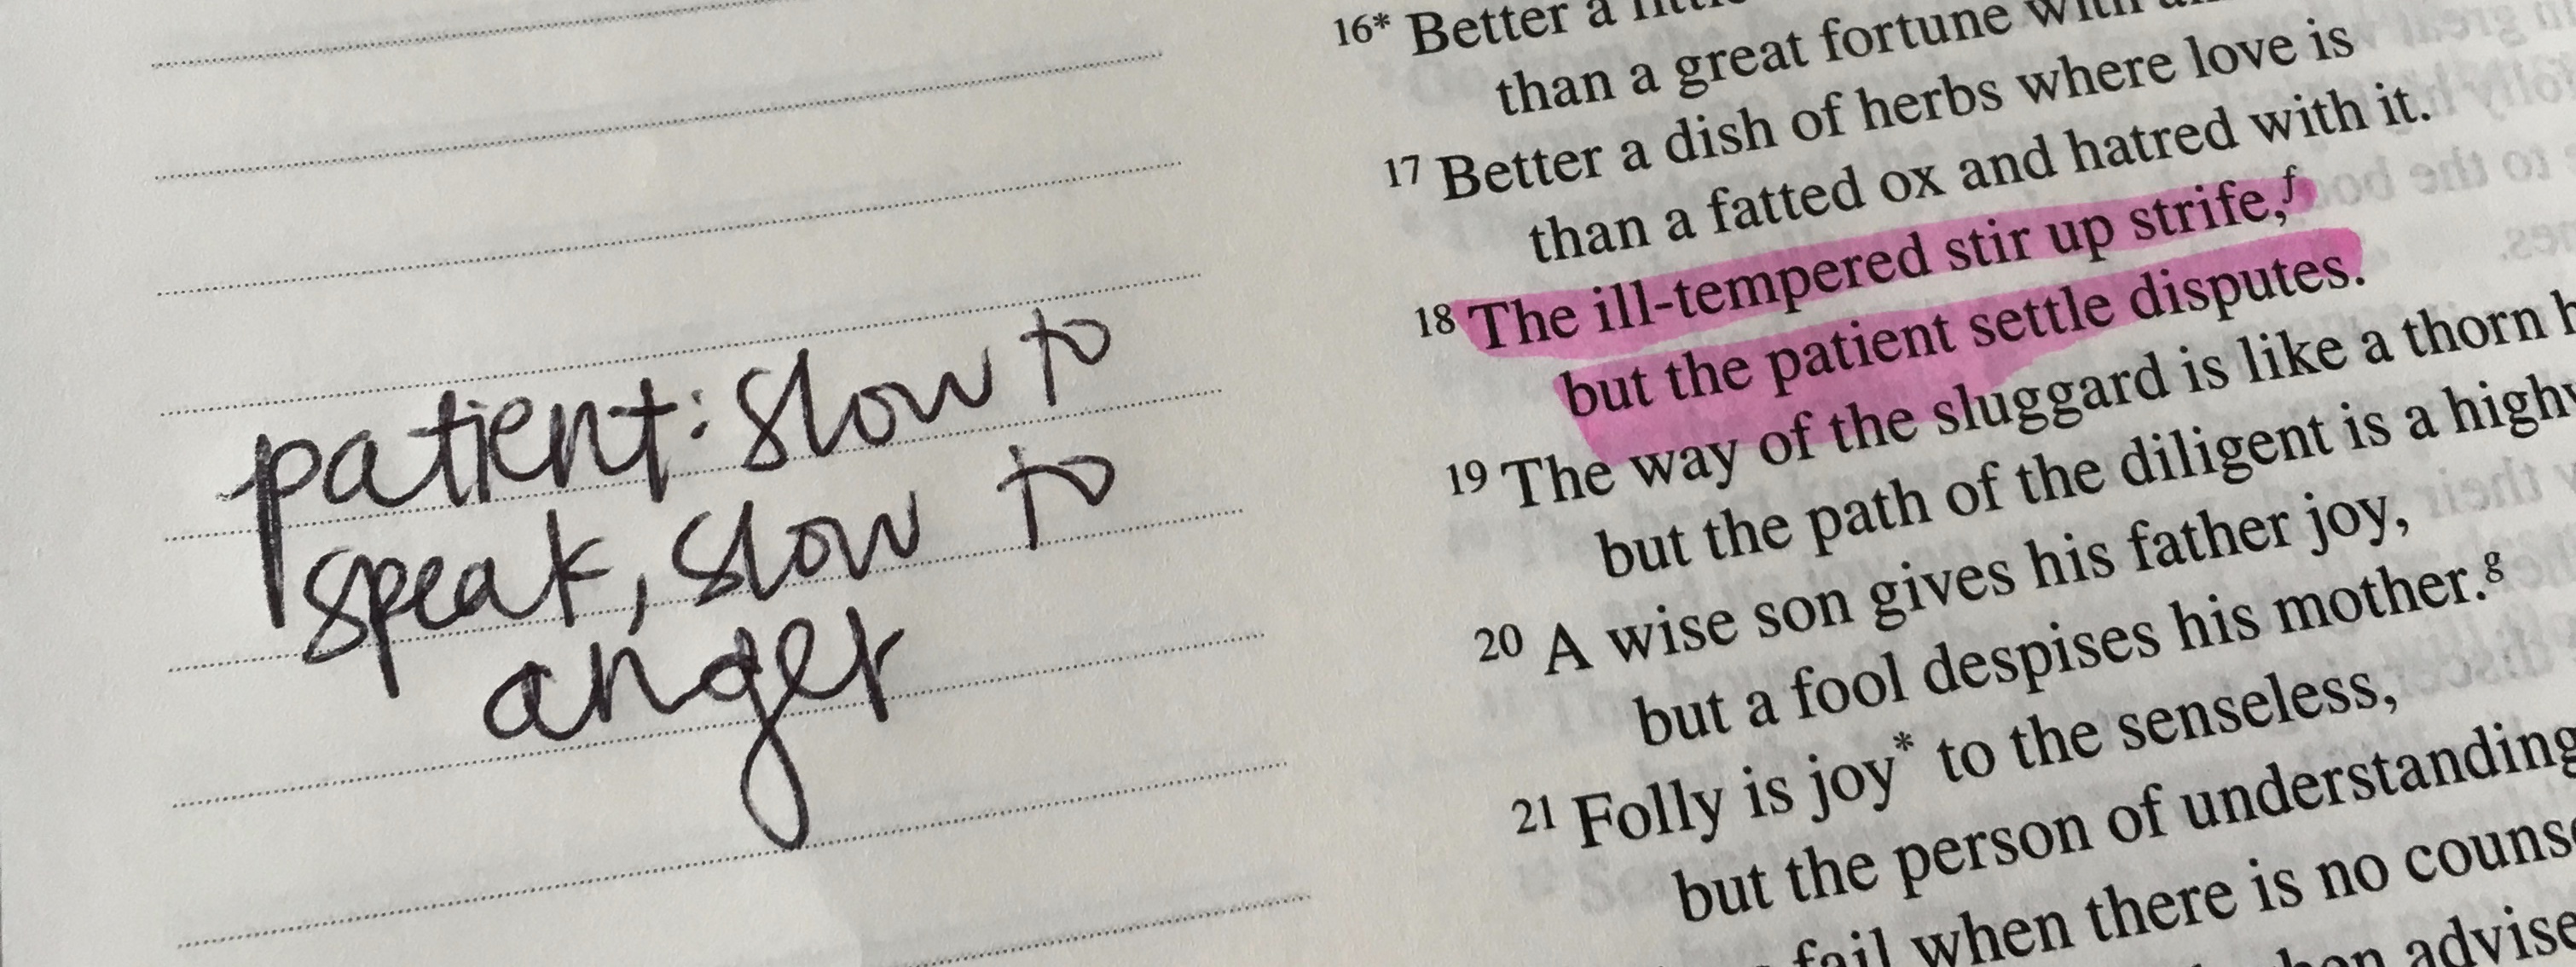 patient: slow to
speak, slow to
anger
16* Better a little
than a great fortune with
17 Better a dish of herbs where love is
than a fatted ox and hatred with it.
18 The ill-tempered stir up strife,f
but the patient settle disputes.
19 The way of the sluggard is like a thorn
but the path of the diligent is a high
20 A wise son gives his father joy,
but a fool despises his mother.g
21 Folly is joy* to the senseless,
but the person of understanding
fail when there is no couns
advise